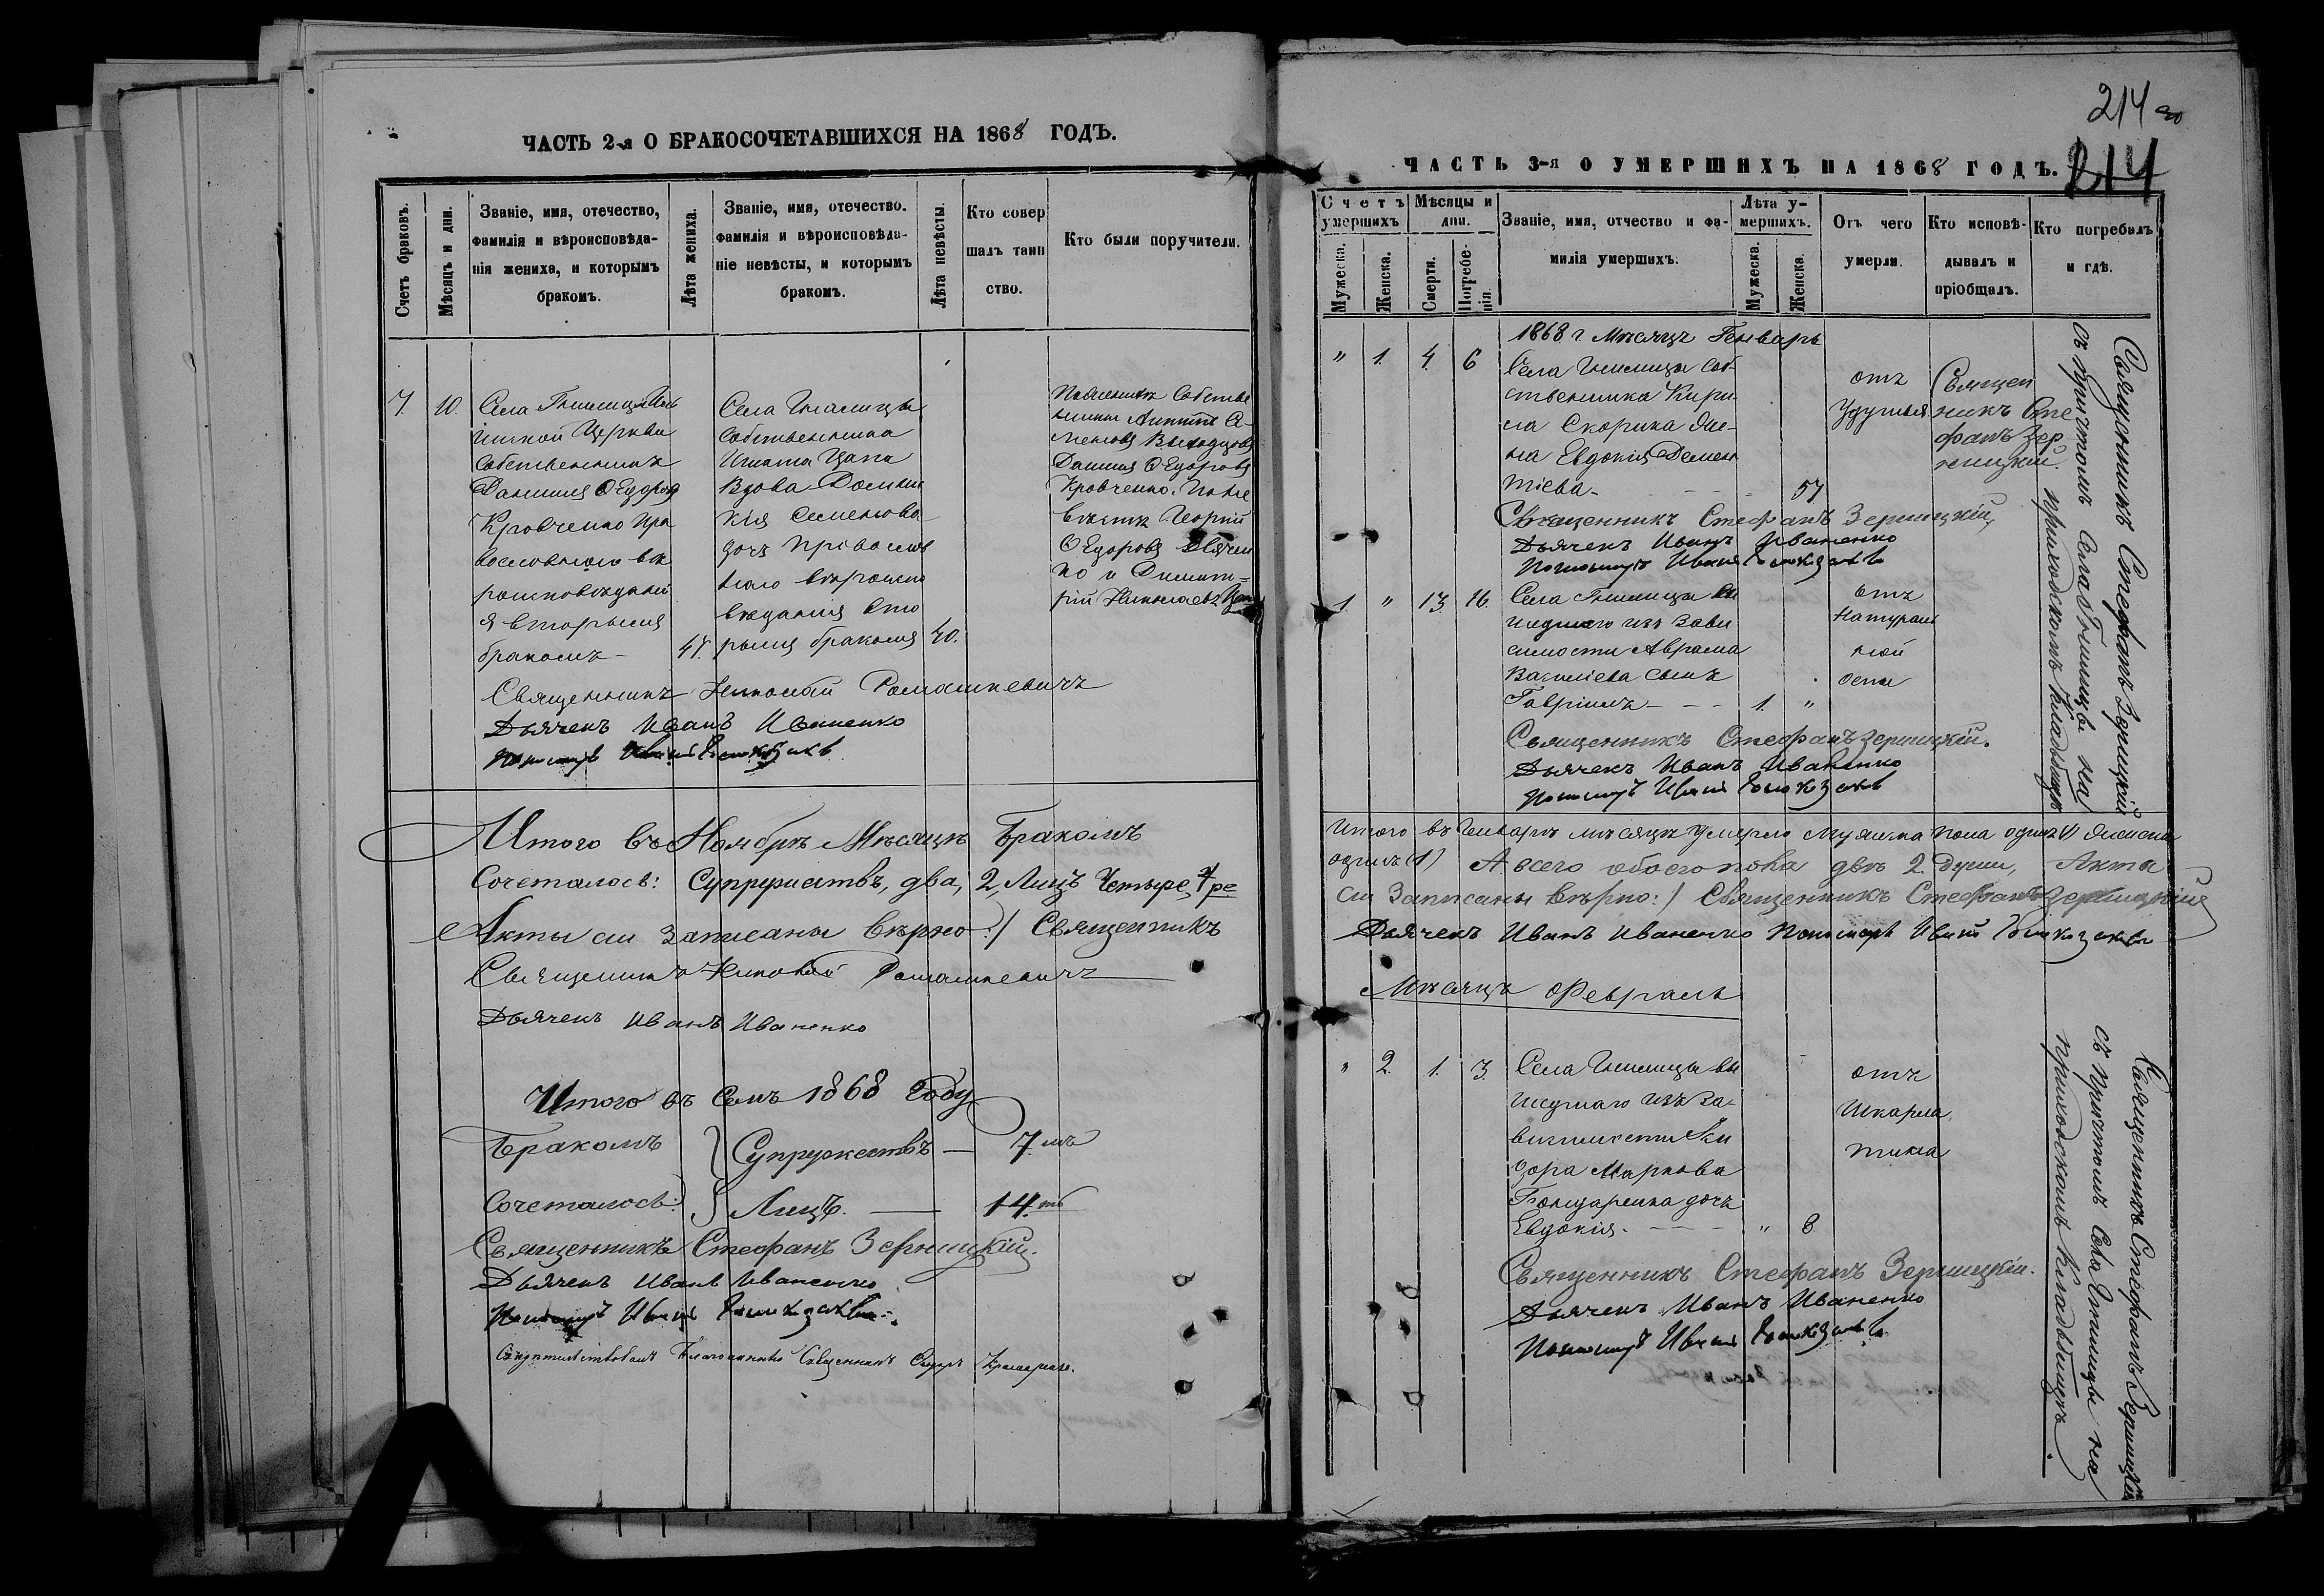 ЧАСТЬ 2-я О БРАКОСОЧЕТАВШИХСЯ НА 1868 ГОДЪ.
Счетъ браковъ.
Мѣсяцъ и дни.
Званіе, имя, отечество,
фамилія и вѣроисповѣда-
нія жениха, и которымъ
бракомъ.
Лѣта жениха.
Званіе, имя, отечество.
фамилія и вѣроисповѣда-
ніе невѣсты, и которымъ
бракомъ.
Лѣта невѣсты.
Кто совер
шалъ таин
ство.
Кто были поручители.
7.
10.
Села Гнилицы
Церкви
собственникъ
Даніилъ Ѳедоровъ
Кровченко Пра
вославнаго вѣ
роисповѣдані
я вторымъ
бракомъ-
Села Гнилицы
собственника
Игната Цапа
Вдова Домни
кія Семенова
дочь Православ
наго вѣроиспо
вѣданія вто
рымъ бракомъ
40.
собстве
нники
Даніилъ Ѳедоровъ
Кровченко.
Георгій
Ѳедоровъ
ко и Димит=
рій Николаевъ
Священникъ Николай Ромашкевичъ
Дьячекъ Иванъ Иваненко
Пономарь Иванъ
Итого въ Ноябрѣ Мѣсяцѣ Бракомъ
Сочеталось: Супружествъ, два, 2, Лицъ Четыре, 4ре
Акты сіи записаны вѣрно:/ Священникъ
Священникъ Николай Ромашкевичъ
Дьячекъ Иванъ Иваненко
Итого въ Семъ 1868 Году
Бракомъ } Супружествъ — 7мъ
Сочеталось: } Лицъ. — 14.ть
Священникъ Стефанъ Зерницкій.
Дьячекъ Иванъ Иваненко
Пономарь Иванъ
Благочинный Священникъ
214
214
ЧАСТЬ 3-я О УМЕРШИХЪ НА 1868 ГОДЪ.
Счетъ
умершихъ
Мужеска.
Женска.
Мѣсяцы и
дни.
Смерти.
Погребе-
нія.
Званіе, имя, отчество и фа-
милія умершихъ.
Лѣта у-
мершихъ.
Мужеска.
Женска.
Отъ чего
умерли.
Кто исповѣ-
дывалъ и
пріобщалъ.
Кто погребалъ
и гдѣ.
1868 г Мѣсяцъ Генварь
"
1.
4.
6
Села Гнилицы соб-
ственника Кири
ла Скорика же-
на Евдокія Демен
тіева-
57
отъ
Удушья
Священ
никъ Сте
фанъ Зер
ницкій.
Священникъ Стефанъ Зерницкій
съ причтомъ Села Гнилицы на
приходскомъ Кладбищѣ
Священникъ Стефанъ Зерницкій
Дьячекъ Иванъ Иваненко
Пономарь Иванъ
1.
"
13
16.
Села Гнилицы вы
шедшаго изъ Зави
симости Аврама
Василіева сынъ
Гавріилъ - - -
1.
"
отъ
Натураль
ной
оспы
Священникъ Стефанъ Зерницкій.
Дьячекъ Иванъ Иваненко
Пономарь Иванъ
Итого въ Генварѣ мѣсяцѣ умерло мужска пола одинъ (1) женска
одинъ (1) А всего обоего пола двѣ 2. души, Акты
сіи Записаны вѣрно:/ Священникъ Стефанъ Зерницкій
Дьячекъ Иванъ Иваненко Пономарь Иванъ
Мѣсяцъ Февраль
"
2.
1.
3.
Села Гнилицы вы
шедшаго изъ За-
висимости
дора Маркова
Бондаренка дочь
Евдокія. - - -
"
8
отъ
Шкарла
тина
Священникъ Стефанъ Зерницкій
съ причтомъ Села Гнилицы на
приходскомъ Кладбищѣ.
Священникъ Стефанъ Зерницкій.
Дьячекъ Иванъ Иваненко
Пономарь Иванъ